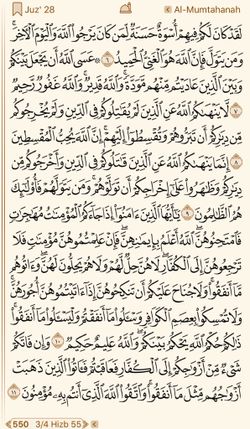 Juz' 28
Al-Mumtahanah
لَقَدْ كَانَ لَكُمْ فِيهِمْ أُسْوَةٌ حَسَنَةٌ لِّمَن كَانَ يَرْجُوا۟ ٱللَّهَ وَٱلْيَوْمَ ٱلْءَاخِرَ ۚ
وَمَن يَتَوَلَّ فَإِنَّ ٱللَّهَ هُوَ ٱلْغَنِىُّ ٱلْحَمِيدُ ٦ ۞ عَسَى ٱللَّهُ أَن يَجْعَلَ بَيْنَكُمْ
وَبَيْنَ ٱلَّذِينَ عَادَيْتُم مِّنْهُم مَّوَدَّةً ۚ وَٱللَّهُ قَدِيرٌ ۚ وَٱللَّهُ غَفُورٌ رَّحِيمٌ
٧ لَّا يَنْهَىٰكُمُ ٱللَّهُ عَنِ ٱلَّذِينَ لَمْ يُقَـٰتِلُوكُمْ فِى ٱلدِّينِ وَلَمْ يُخْرِجُوكُم
مِّن دِيَـٰرِكُمْ أَن تَبَرُّوهُمْ وَتُقْسِطُوٓا۟ إِلَيْهِمْ ۚ إِنَّ ٱللَّهَ يُحِبُّ ٱلْمُقْسِطِينَ
٨ إِنَّمَا يَنْهَىٰكُمُ ٱللَّهُ عَنِ ٱلَّذِينَ قَـٰتَلُوكُمْ فِى ٱلدِّينِ وَأَخْرَجُوكُم مِّن
دِيَـٰرِكُمْ وَظَـٰهَرُوا۟ عَلَىٰٓ إِخْرَاجِكُمْ أَن تَوَلَّوْهُمْ ۚ وَمَن يَتَوَلَّهُمْ فَأُو۟لَـٰٓئِكَ
هُمُ ٱلظَّـٰلِمُونَ ٩ يَـٰٓأَيُّهَا ٱلَّذِينَ ءَامَنُوٓا۟ إِذَا جَآءَكُمُ ٱلْمُؤْمِنَـٰتُ مُهَـٰجِرَٰتٍ
فَٱمْتَحِنُوهُنَّ ۖ ٱللَّهُ أَعْلَمُ بِإِيمَـٰنِهِنَّ ۖ فَإِنْ عَلِمْتُمُوهُنَّ مُؤْمِنَـٰتٍ فَلَا
تَرْجِعُوهُنَّ إِلَى ٱلْكُفَّارِ ۖ لَا هُنَّ حِلٌّ لَّهُمْ وَلَا هُمْ يَحِلُّونَ لَهُنَّ ۖ وَءَاتُوهُم
مَّآ أَنفَقُوا۟ ۚ وَلَا جُنَاحَ عَلَيْكُمْ أَن تَنكِحُوهُنَّ إِذَآ ءَاتَيْتُمُوهُنَّ أُجُورَهُنَّ ۚ
وَلَا تُمْسِكُوا۟ بِعِصَمِ ٱلْكَوَافِرِ وَسْـَٔلُوا۟ مَآ أَنفَقْتُمْ وَلْيَسْـَٔلُوا۟ مَآ أَنفَقُوا۟ ۚ
ذَٰلِكُمْ حُكْمُ ٱللَّهِ ۖ يَحْكُمُ بَيْنَكُمْ ۚ وَٱللَّهُ عَلِيمٌ حَكِيمٌ ١٠ وَإِن فَاتَكُمْ
شَىْءٌ مِّنْ أَزْوَٰجِكُمْ إِلَى ٱلْكُفَّارِ فَعَاقَبْتُمْ فَـَٔاتُوا۟ ٱلَّذِينَ ذَهَبَتْ
أَزْوَٰجُهُم مِّثْلَ مَآ أَنفَقُوا۟ ۚ وَٱتَّقُوا۟ ٱللَّهَ ٱلَّذِىٓ أَنتُم بِهِۦ مُؤْمِنُونَ ١١
550 3/4 Hizb 55